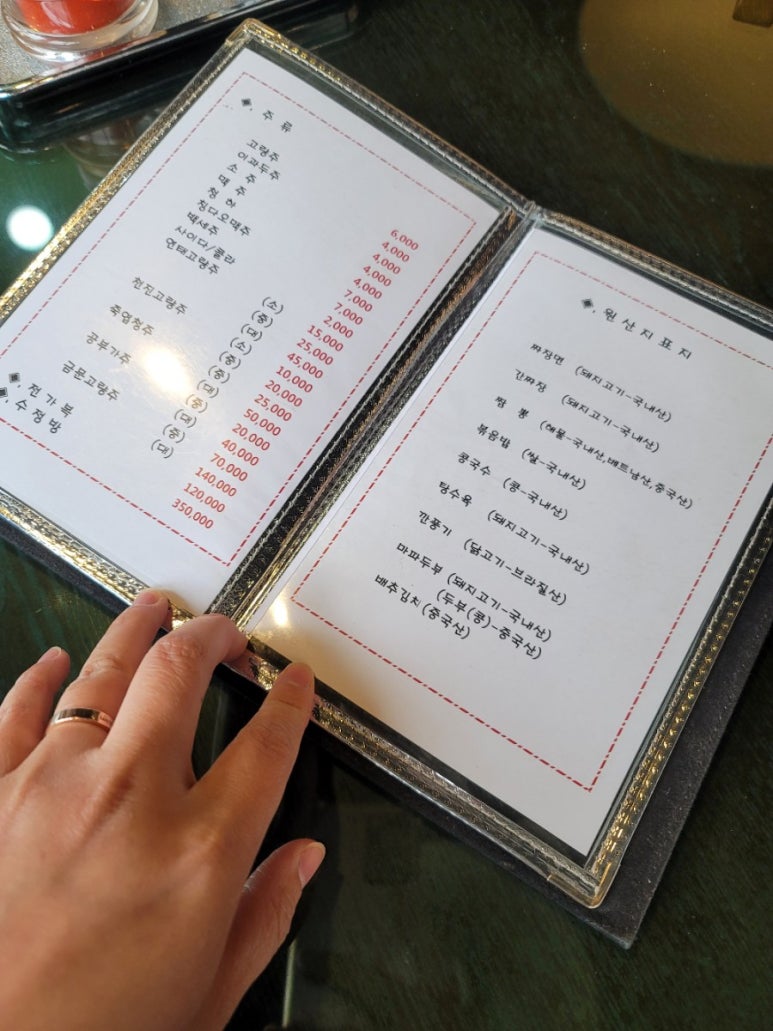 ◈. 주 류
고량주 6,000
이과두주 4,000
소 주 4,000
맥 주 4,000
청 하 4,000
칭다오맥주 7,000
백세주 7,000
사이다/콜라 2,000
연태고량주 (소) 15,000
(중) 25,000
(대) 45,000
천진고량주 (소) 10,000
(중) 20,000
죽엽청주 (중) 25,000
(대) 50,000
공부가주 (중) 20,000
(대) 40,000
금문고량주 (중) 70,000
(대) 140,000
◈. 전 가 복 120,000
◈. 수 정 방 350,000
◈. 원 산 지 표 지
짜장면 (돼지고기-국내산)
간짜장 (돼지고기-국내산)
짬 뽕 (해물-국내산,베트남산,중국산)
볶음밥 (쌀-국내산)
콩국수 (콩-국내산)
탕수육 (돼지고기-국내산)
깐풍기 (닭고기-브라질산)
마파두부 (돼지고기-국내산)
(두부(콩)-중국산)
배추김치(중국산)